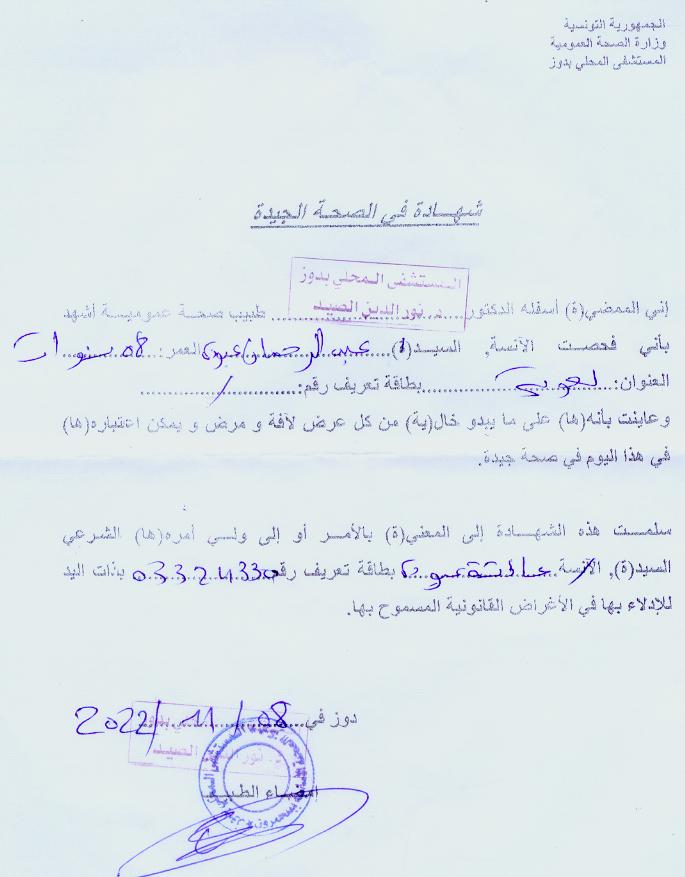 الجمهورية التونسية
وزارة الصحة العمومية
المستشفى المحلي بدوز
شهادة في الصحة الجيدة
المستشفى المحلي بدوز
د. نور الدين الصيد
إني الممضي(ة) أسفله الدكتور.................... طبيب صحة عمومية أشهد
بأني فحصت الآنسة, السيد(ة)...عبد الرحمان... العمر: 08 سنوات
العنوان:.................... بطاقة تعريف رقم:.........../...........
وعاينت بأنه(ها) على ما يبدو خال(ية) من كل عرض لآفة و مرض و يمكن اعتباره(ها)
في هذا اليوم في صحة جيدة.
سلمت هذه الشهادة إلى المعني(ة) بالأمر أو إلى ولي أمره(ها) الشرعي
السيد(ة), الآنسة...عائشة... بطاقة تعريف رقم 03324330 بذات اليد
للإدلاء بها في الأغراض القانونية المسموح بها.
دوز في 08/11/2022
إمضاء الطبيب